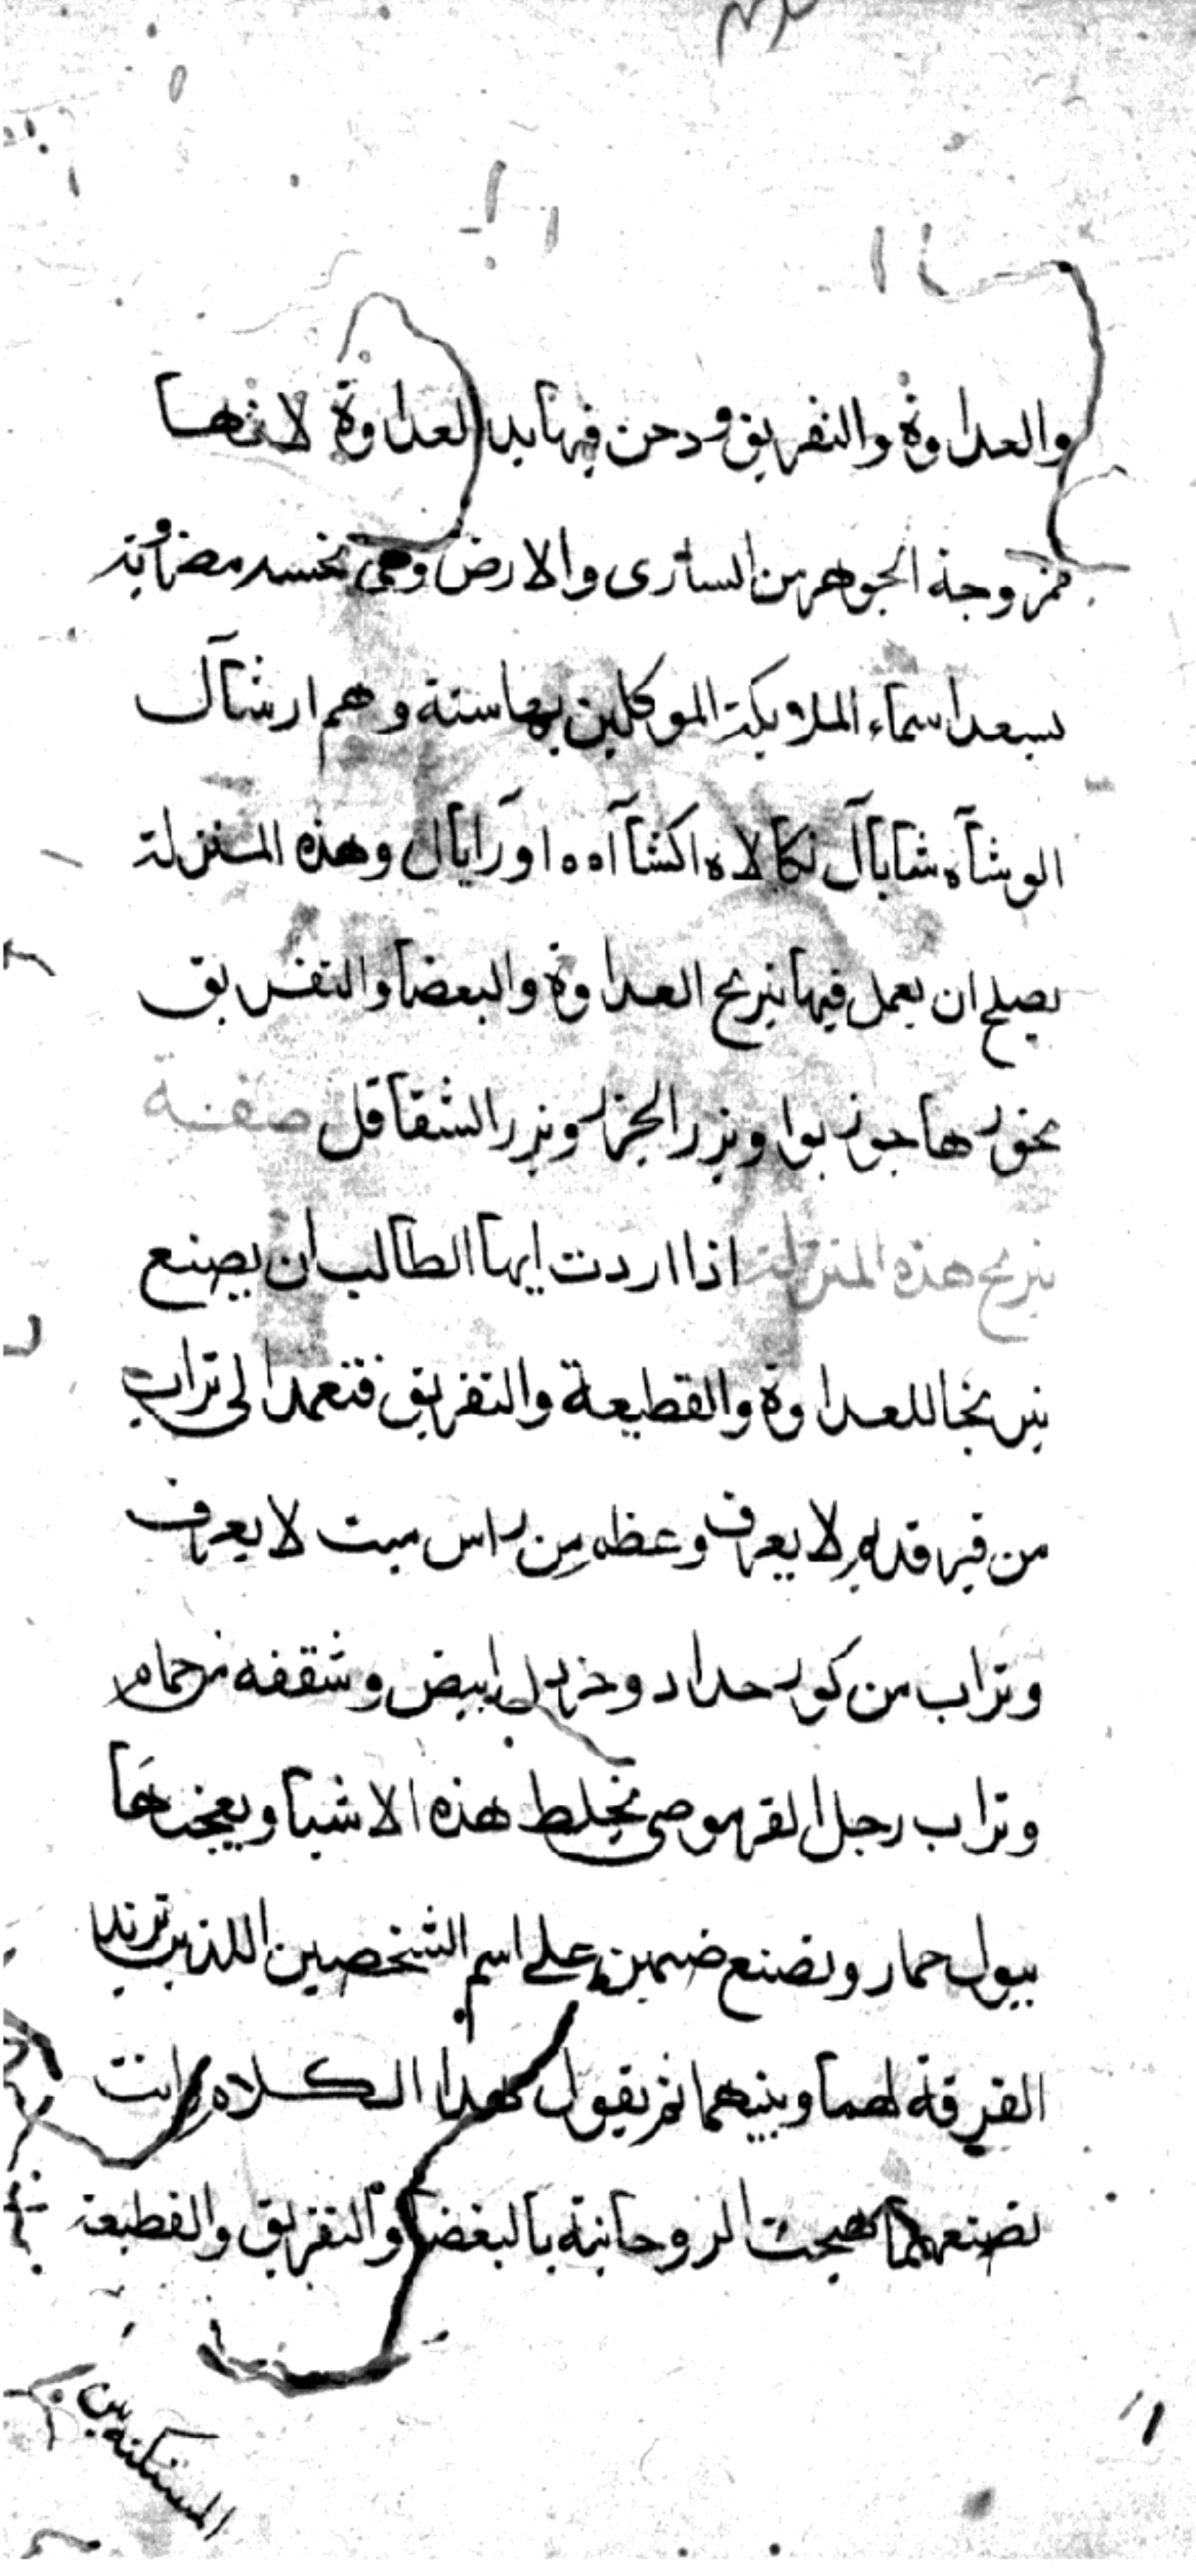 والعداوة والتفريق ودخن فيها بد العداوة لانها
ممزوجة الجوهر من السأرى والارض وهى نحسه مضروبة
بسعد اسماء الملايكة الموكلين بها ستة وهم ارشآل
الوشآه شابآل نكالاه اكشاآه ه اورايآل وهذه المنزلة
يصلح ان يعمل فيها نيرنج العداوة والبغضا والتفريق
بخورها جوزبوا وبزر الجزر وبزر الشقاقل صفة
نيرنج هذه المنزلة اذا اردت ايها الطالب ان يصنع
نيرنجا للعداوة والقطيعة والتفريق فتعمد الى تراب
من قبر قديم لا يعرف وعظم من راس ميت لا يعرف
وتراب من كور حداد وخردل ابيض وشقفه من حمام
وتراب رجل القرموصى نخلط هذه الاشيا ويعجنها
ببول حمار وتصنع ضمين على اسم الشخصين اللذين تريد
الفرقة لهما وبينهما ثم يقول هذا الكلام وانت
تصنعهما هيجت الروحانية بالبغضا والتفريق والقطيعة
المستكنة بين